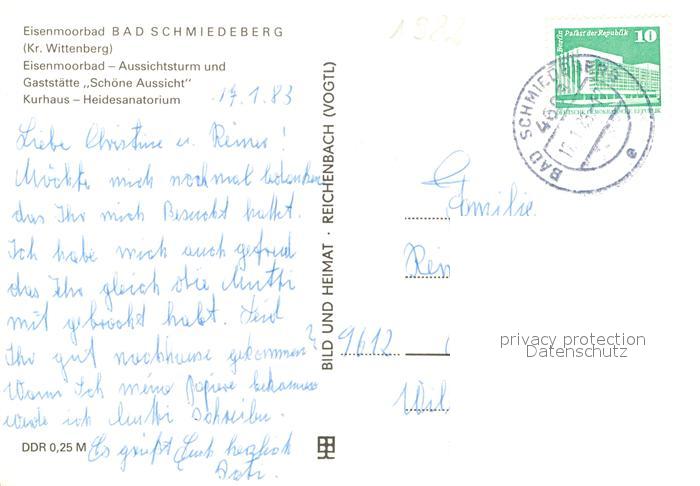 Eisenmoorbad BAD SCHMIEDEBERG
(Kr. Wittenberg)
Eisenmoorbad – Aussichtsturm und
Gaststätte „Schöne Aussicht"
Kurhaus – Heidesanatorium
17.1.83
Liebe Christine u. Reiner!
Möchte mich nochmal bedanken
das Ihr mich Besucht hattet.
Ich habe mich auch gefreut
das Ihr gleich die Mutti
mit gebracht habt. Seid
Ihr gut nachhause gekommen?
Wann Ich meine Papiere bekomme
werde ich Mutti Schreiben.
Es grüßt Euch herzlich
DDR 0,25 M
BILD UND HEIMAT · REICHENBACH (VOGTL)
1982
Berlin Palast der Republik
10
DEUTSCHE DEMOKRATISCHE REPUBLIK
BAD SCHMIEDEBERG
e
Familie
9612
privacy protection
Datenschutz